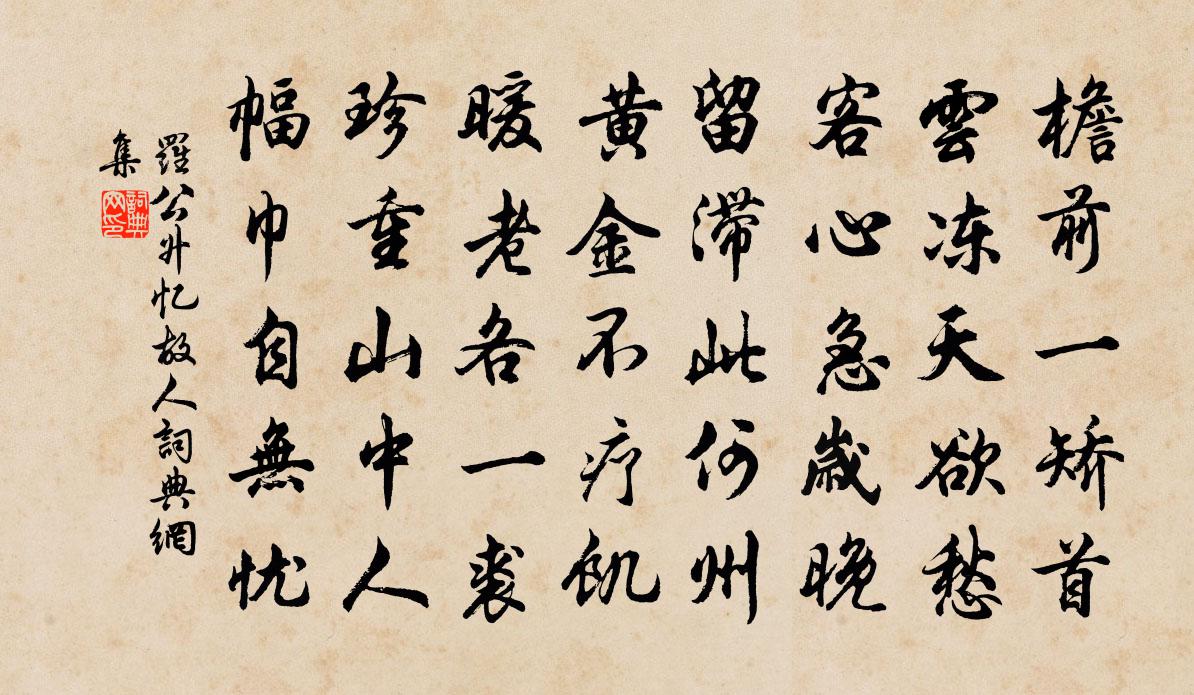 檐前一矫首
雲冻天欲愁
客心急歲晚
留滞此何州
黄金不疗饥
暖老各一裘
珍重山中人
幅巾自無忧
羅公升忆故人詞典網
集
詞典
网印